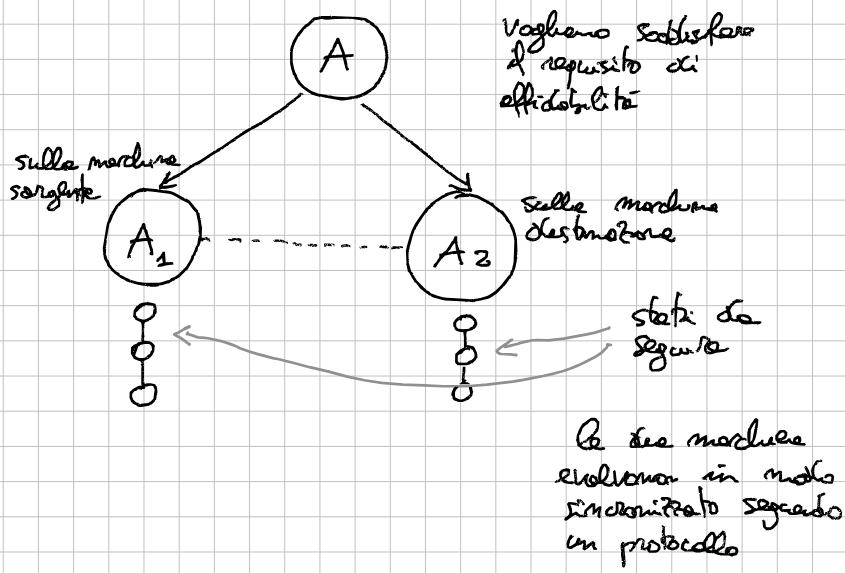 A
vogliamo soddisfare
il requisito di
affidabilità
sulla macchina
sorgente
A1
sulla macchina
destinazione
A2
stati da
seguire
le due macchine
evolvono in modo
sincronizzato seguendo
un protocollo